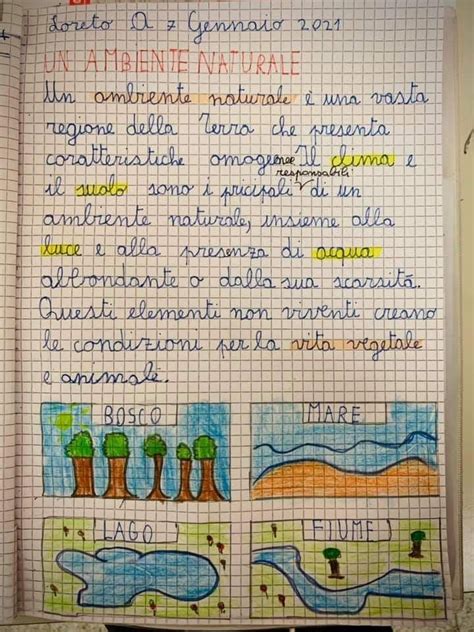 Loreto A 7 Gennaio 2021
UN AMBIENTE NATURALE
Un ambiente naturale è una vasta
regione della Terra che presenta
caratteristiche omogenee. Il clima e
responsabili
il suolo sono i pricipali di un
ambiente naturale, insieme alla
luce e alla presenza di acqua
abbondante o dalla sua scarsità.
Questi elementi non viventi creano
le condizioni per la vita vegetale
e animale.
BOSCO
MARE
LAGO
FIUME